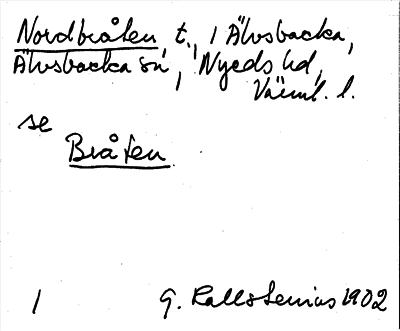 Nordbråten, t., 1 Älvsbacka,
Älvsbacka sn, Nyeds hd,
Värml. l.
se
Bråten
1 G. Kallstenius 1902